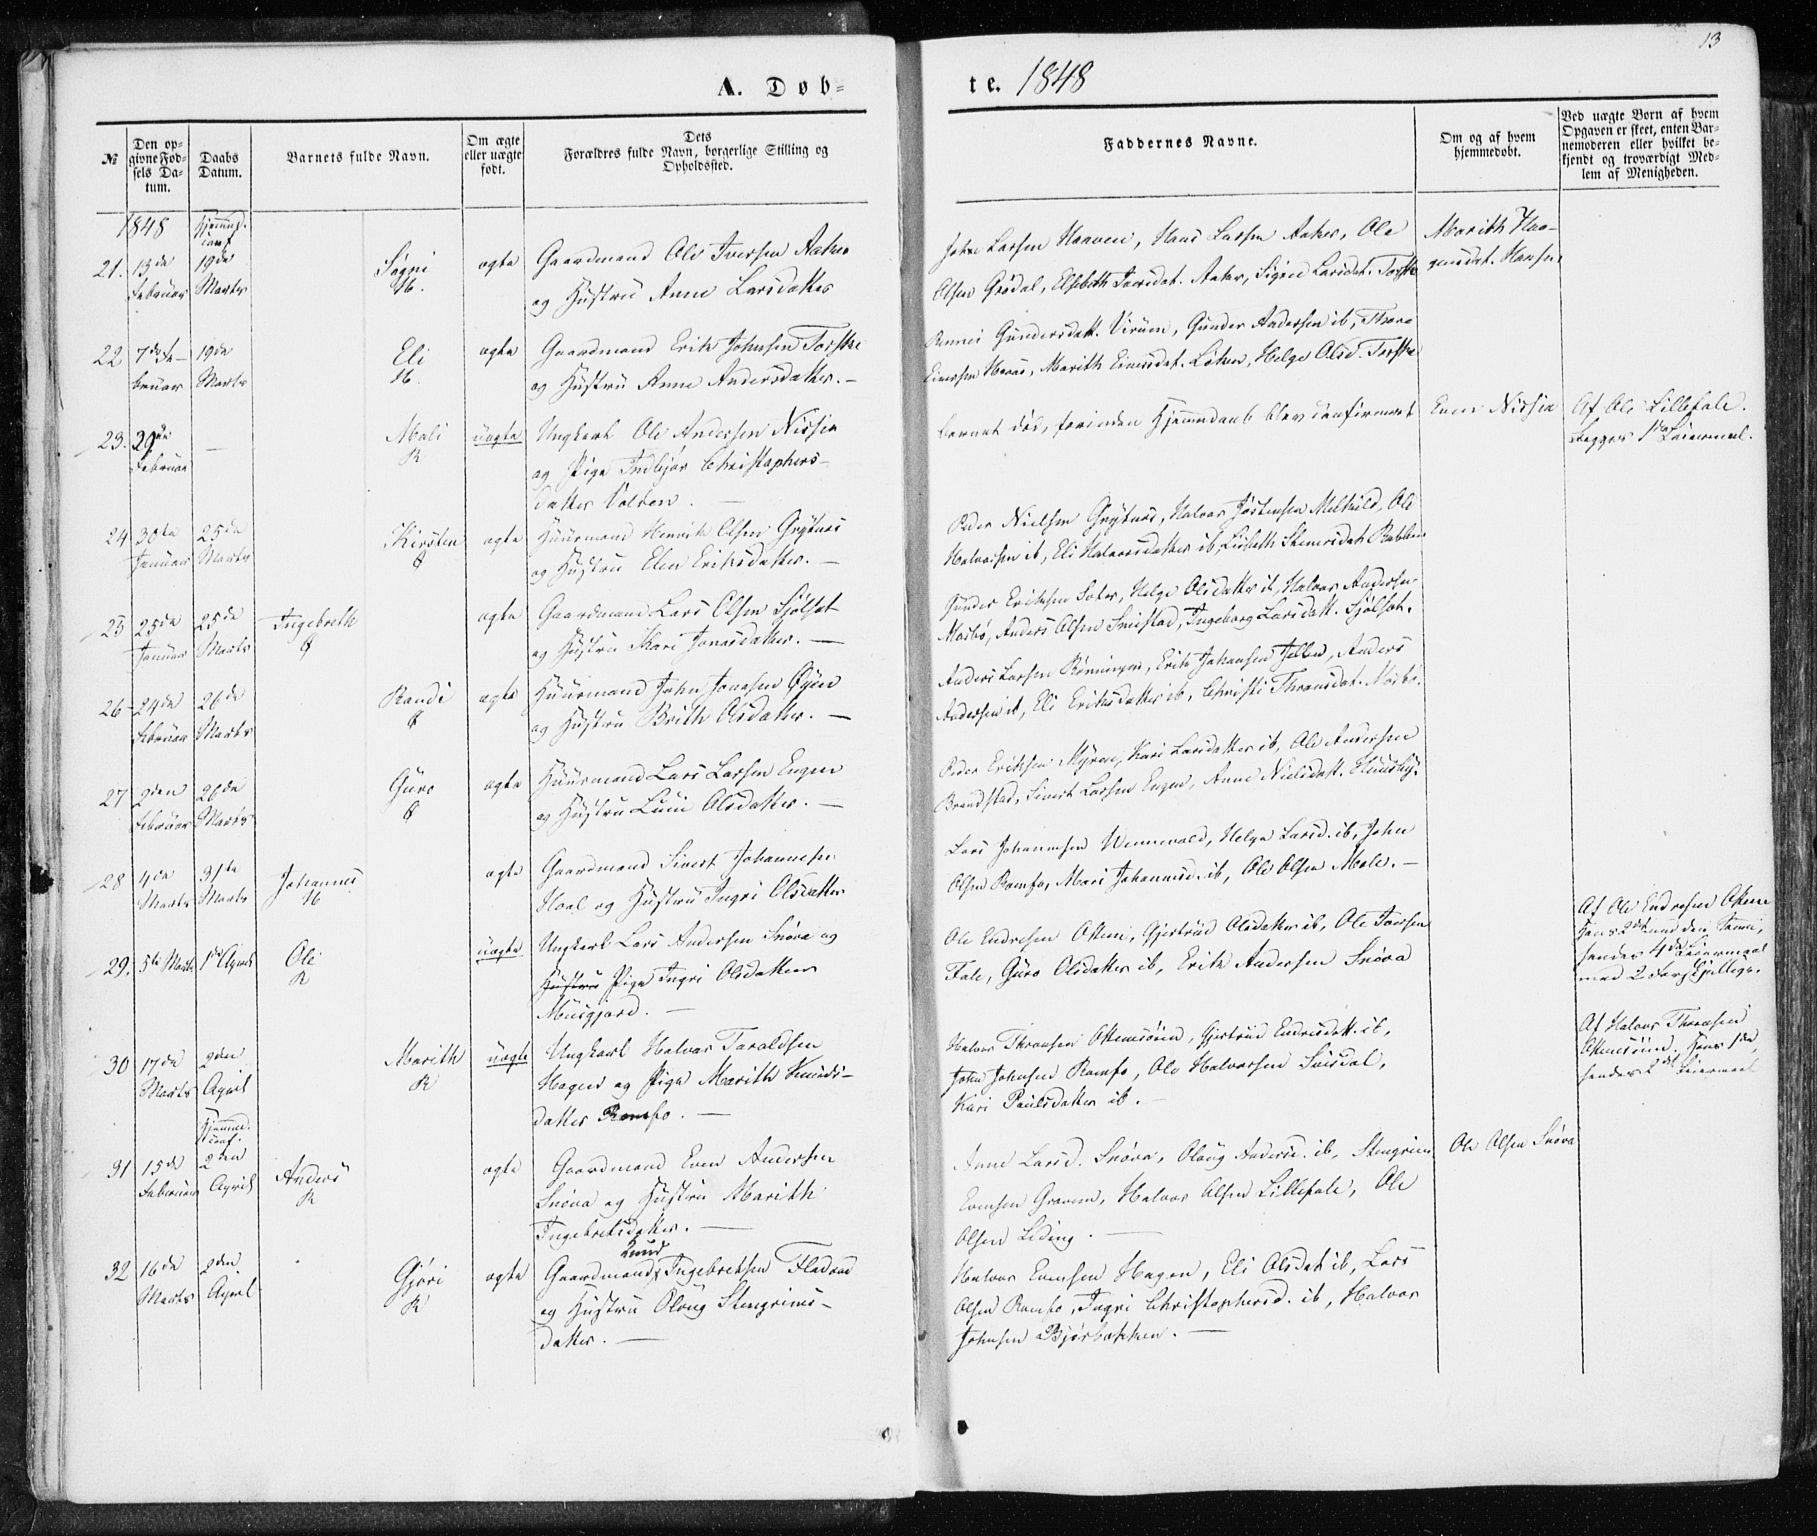 13
A. Døb=
te. 1848
№
Den op=
givne Fød=
sels Da=
tum.
Daabs
Datum.
Barnets fulde Navn.
Om ægte
eller uægte
født.
Dets
Forældres fulde Navn, borgerlige Stilling og
Opholdssted.
Faddernes Navne.
Om og af hvem
hjemmedøbt.
Ved uægte Børn af hvem
Opgaven er skeet, enten Bar=
nemoderen eller hvilket be=
kjendt og troværdigt Med=
lem af Menigheden.
1848
21. 13de Februar
19de Marts
ægte
Gaardmand Ole Iversen Aaker
og Hustru Anne Larsdatter
John Larsen Haaven, Hans Larsen Aaker, Ole
Olsen Grødal, Elsebeth Iversdat. Aaker, Sigrid Larsdat. Torske
Marith Haa-
gensdat. Hansen
22 7de Fe-
bruar
19de Marts
Eli
ægte
Gaardmand Erik Johnsen Torske
og Hustru Anne Andersdatter. —
Gundersdatt. Virum, Gunder Andersen ib, Thore
Einersen Marith Einersdat. Løken, Helge Olsd. Torske
23. 29de Februar
—
Mali
R
uægte
Ungkarl Ole Andersen Nissen
og Pige Ingbjør Christophers-
datter Volden. —
barnet død, forinden Hjemmedaab blev confirmeret
Even Nissen
Af Ole Lillefale.
begges 1ste Leiermaal.
24 30te Januar
25de Marts
Kirsten
Ø
ægte
Huusmand Henrik Olsen Grytnes
og Hustru Elen Eriksdatter. —
Peder Nielsen Grytnes, Halvor Jostensen Melkild, Ole
Halvorsen ib, Eli Halvorsdatter ib, Lisbeth Steners dat. Bakken
25 25de Januar
25de Marts
Ingebreth
Ø
ægte
Gaardmand Lars Olsen Sjølset
og Hustru Kari Jonasdatter. —
Gunder Eriksen Sæter, Helge Olsdatter ib, Halvor Andersen
Mosbø, Anders Olsen Smistad, Ingeborg Larsdatt. Sjølset.
26 24de Februar
26de Marts
Randi
Ø
ægte
Huusmand John Jonasen Øyen
og Hustru Brith Olsdatter. —
Anders Larsen Rønningen, Erik Johansen Jellen, Anders
Andersen ib, Eli Eriksdatter ib, Christi Thronsdat. Mosbø.
27 2den Februar
26de Marts
Guro
Ø
ægte
Huusmand Lars Larsen Engen
og Hustru Olsdatter. —
Peder Eriksen Myren, Kari Larsdatter ib, Ole Andersen
Brandstad, Sivert Larsen Engen, Anne Nielsdatt. Huusby.
28 4de Marts
31te Marts
Johannes
H
ægte
Gaardmand Sivert Johannesen
Hoel og Hustru Ingri Olsdatter
Lars Johannesen Wennevold, Helga Larsd. ib, John
Olsen Romfo, Mari Johannesd. ib, Ole Olsen Mæle. —
29. 5te Marts
1ste April
Ole
R
uægte
Ungkarl Lars Andersen Snøva og
Hustru Pige Ingri Olsdatter
Musgjerd. —
Ole Endresen Ottem, Gjertrud Olsdatter ib, Ole Iversen
Fale, Guro Olsdatter ib, Erik Andersen Snøva
Af Ole Endresen Ottem
hans 2det med den samme,
hendes 4de Leiermaal
med 2
30 17de Marts
2den April
Marith
R
uægte
Ungkarl Halvor Taraldsen
Hagen og Pige Marith Knuds-
datter Romfo. —
Halvor Thronsen Ottemsøien, Gjertrud Endresdatt. ib,
John Johnsen Romfo, Ole Halvorsen Snisdal,
Kari Paulsdatter ib. —
Af Halvor Thronsen
Ottemsøien. Hans 1ste,
hendes 2det Leiermaal
31 15de Februar
Hjemmed.
conf.
2den April
Anders
R
ægte
Gaardmand Even Andersen
Snøva og Hustru Marith
Ingebretsdatter. —
Anne Larsd. Snøva, Oloug Andersd. ib, Stengrim
Evensen Gravem, Halvor Olsen Lillefale, Ole
Olsen Liding. —
Ole Olsen Snøva
32 16de Marts
2den April
Gjøri
R
ægte
Knud
Gaardmand Ingebretsen Fladvad
og Hustru Oloug Stengrims-
datter. —
Halvor Evensen Hagen, Eli Olsdat ib, Lars
Olsen Romfo, Ingri Christophersd. ib, Halvor
Johnsen Bjørbakken. —